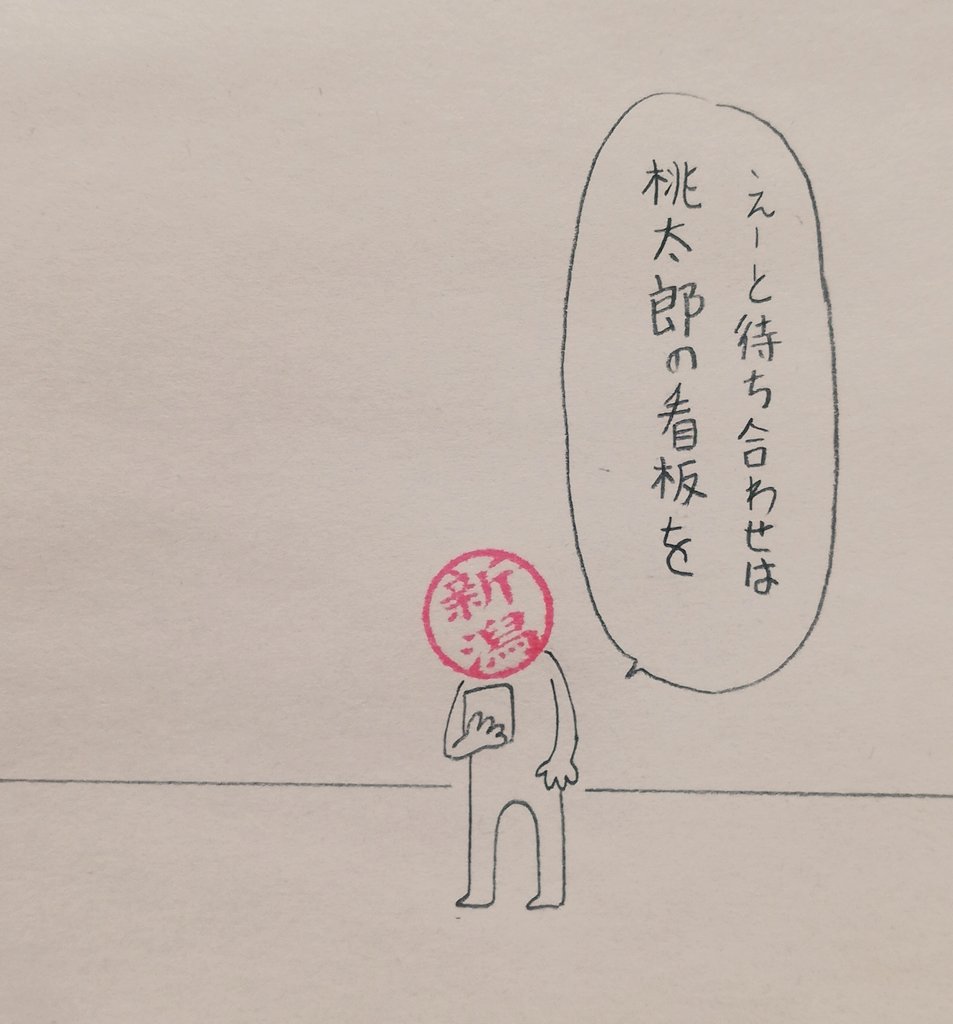 えーと待ち合わせは
桃太郎の看板を
新潟